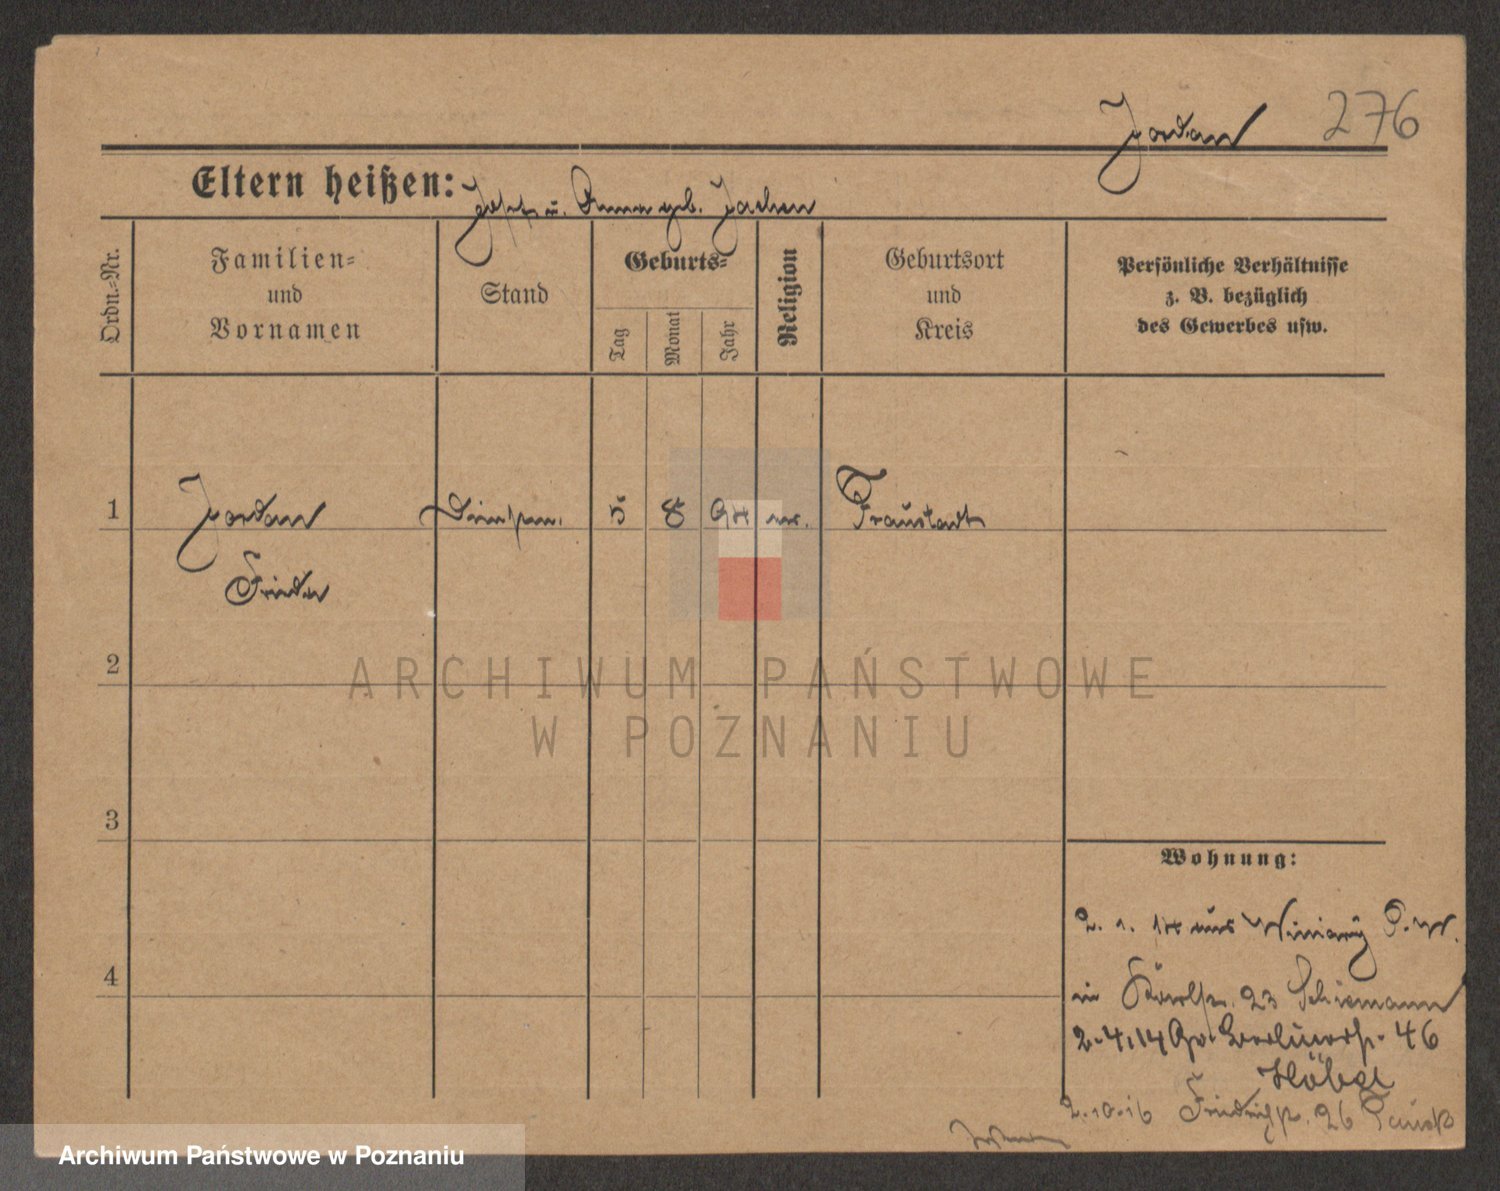 Jordan 276
Eltern heißen: Josef u. Anna geb. Jachen
Ordn.-Nr.
Familien-
und
Vornamen
Stand
Geburts-
Tag
Monat
Jahr
Religion
Geburtsort
und
Kreis
Persönliche Verhältnisse
z. B. bezüglich
des Gewerbes usw.
1 Jordan 5 8 94 Fraustadt
Frieda
2
3
4
Wohnung:
2. 1. 14 aus Winiary P. W.
in 23 Schiemann
2.4.14 Gr. Berlinerstr. 46
2.10.16 Friedrichstr. 26
ARCHIWUM PAŃSTWOWE
W POZNANIU
Archiwum Państwowe w Poznaniu